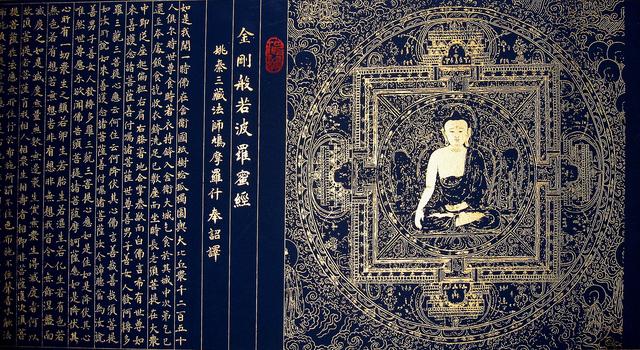 金剛般若波羅蜜經
姚秦三藏法師鳩摩羅什奉詔譯
如是我聞一時佛在舍衛國祇樹給孤獨園與大比丘眾千二百五十
人俱爾時世尊食時著衣持鉢入舍衛大城乞食於其城中次第乞已
還至本處飯食訖收衣鉢洗足已敷座而坐時長老須菩提在大眾
中即從座起偏袒右肩右膝著地合掌恭敬而白佛言希有世尊如
來善護念諸菩薩善付囑諸菩薩世尊善男子善女人發阿耨多
羅三藐三菩提心應云何住云何降伏其心佛言善哉善哉須菩提
如汝所說如來善護念諸菩薩善付囑諸菩薩汝今諦聽當為汝說
善男子善女人發阿耨多羅三藐三菩提心應如是住如是降伏其心
唯然世尊願樂欲聞佛告須菩提諸菩薩摩訶薩應如是降伏其
心所有一切眾生之類若卵生若胎生若濕生若化生若有色若
無色若有想若無想若非有想非無想我皆令入無餘涅槃而
滅度之如是滅度無量無數無邊眾生實無眾生得滅度者何以
故須菩提若菩薩有我相人相眾生相壽者相即非菩薩復次須菩
提菩薩於法應無所住行於布施所謂不住色布施不住聲香味觸